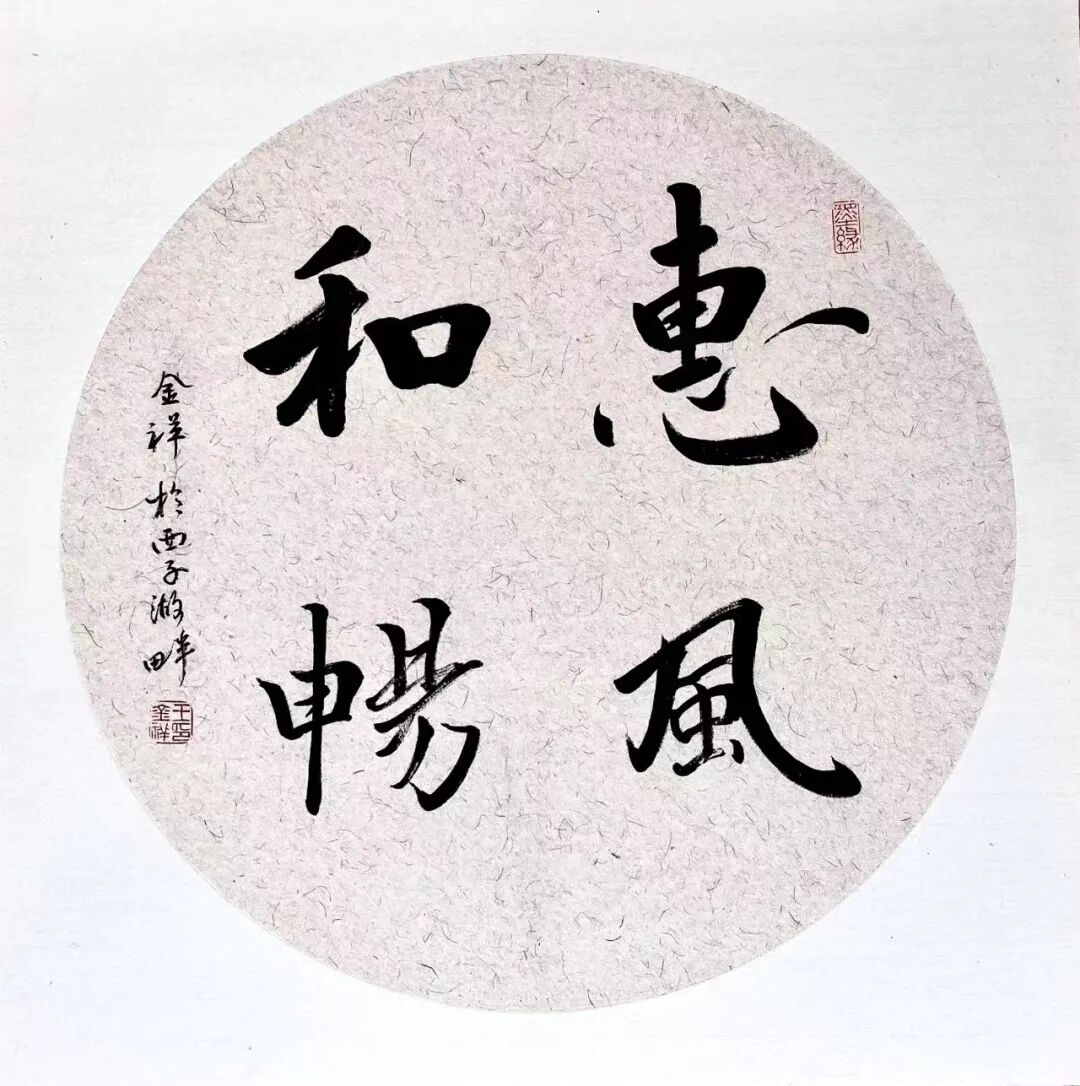 墨緣
惠風
和暢
金祥於西子湖畔
王印
金祥